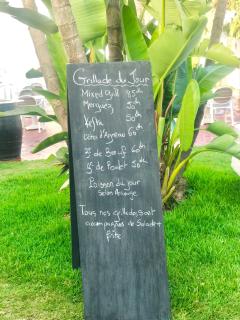 Grillade Du Jour
Mixed Grill 85dh
Merguez 50dh
Kefta 50dh
Côte d'Agneau 60dh
de Bœuf 60dh
de Poulet 50dh
Poisson du jour
Selon Arrivage
Tous nos grillades sont
accompagnées de Salade +
frite